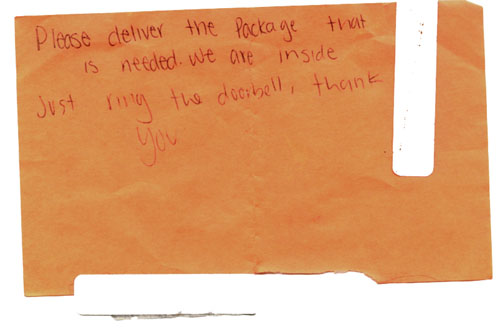 Please deliver the Package that
is needed. we are inside
Just ring the doorbell, thank
you